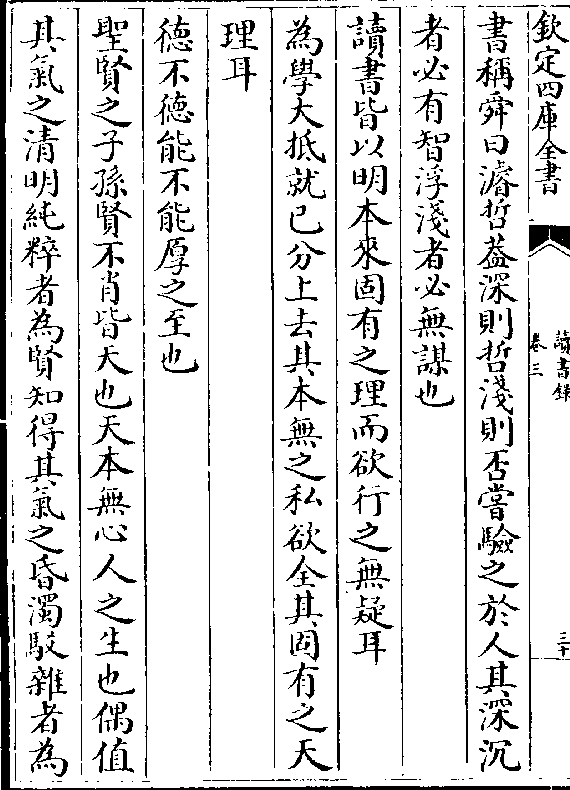 欽定四庫全書
讀書錄
卷三
三十
書稱舜曰濬哲蓋深則哲淺則否嘗驗之於人其深沉
者必有智浮淺者必無謀也
讀書皆以明本來固有之理而欲行之無疑耳
為學大抵就己分上去其本無之私欲全其固有之天
理耳
德不德能不能厚之至也
聖賢之子孫賢不肖皆天也天本無心人之生也偶值
其氣之清明純粹者為賢知得其氣之昏濁駁雜者為